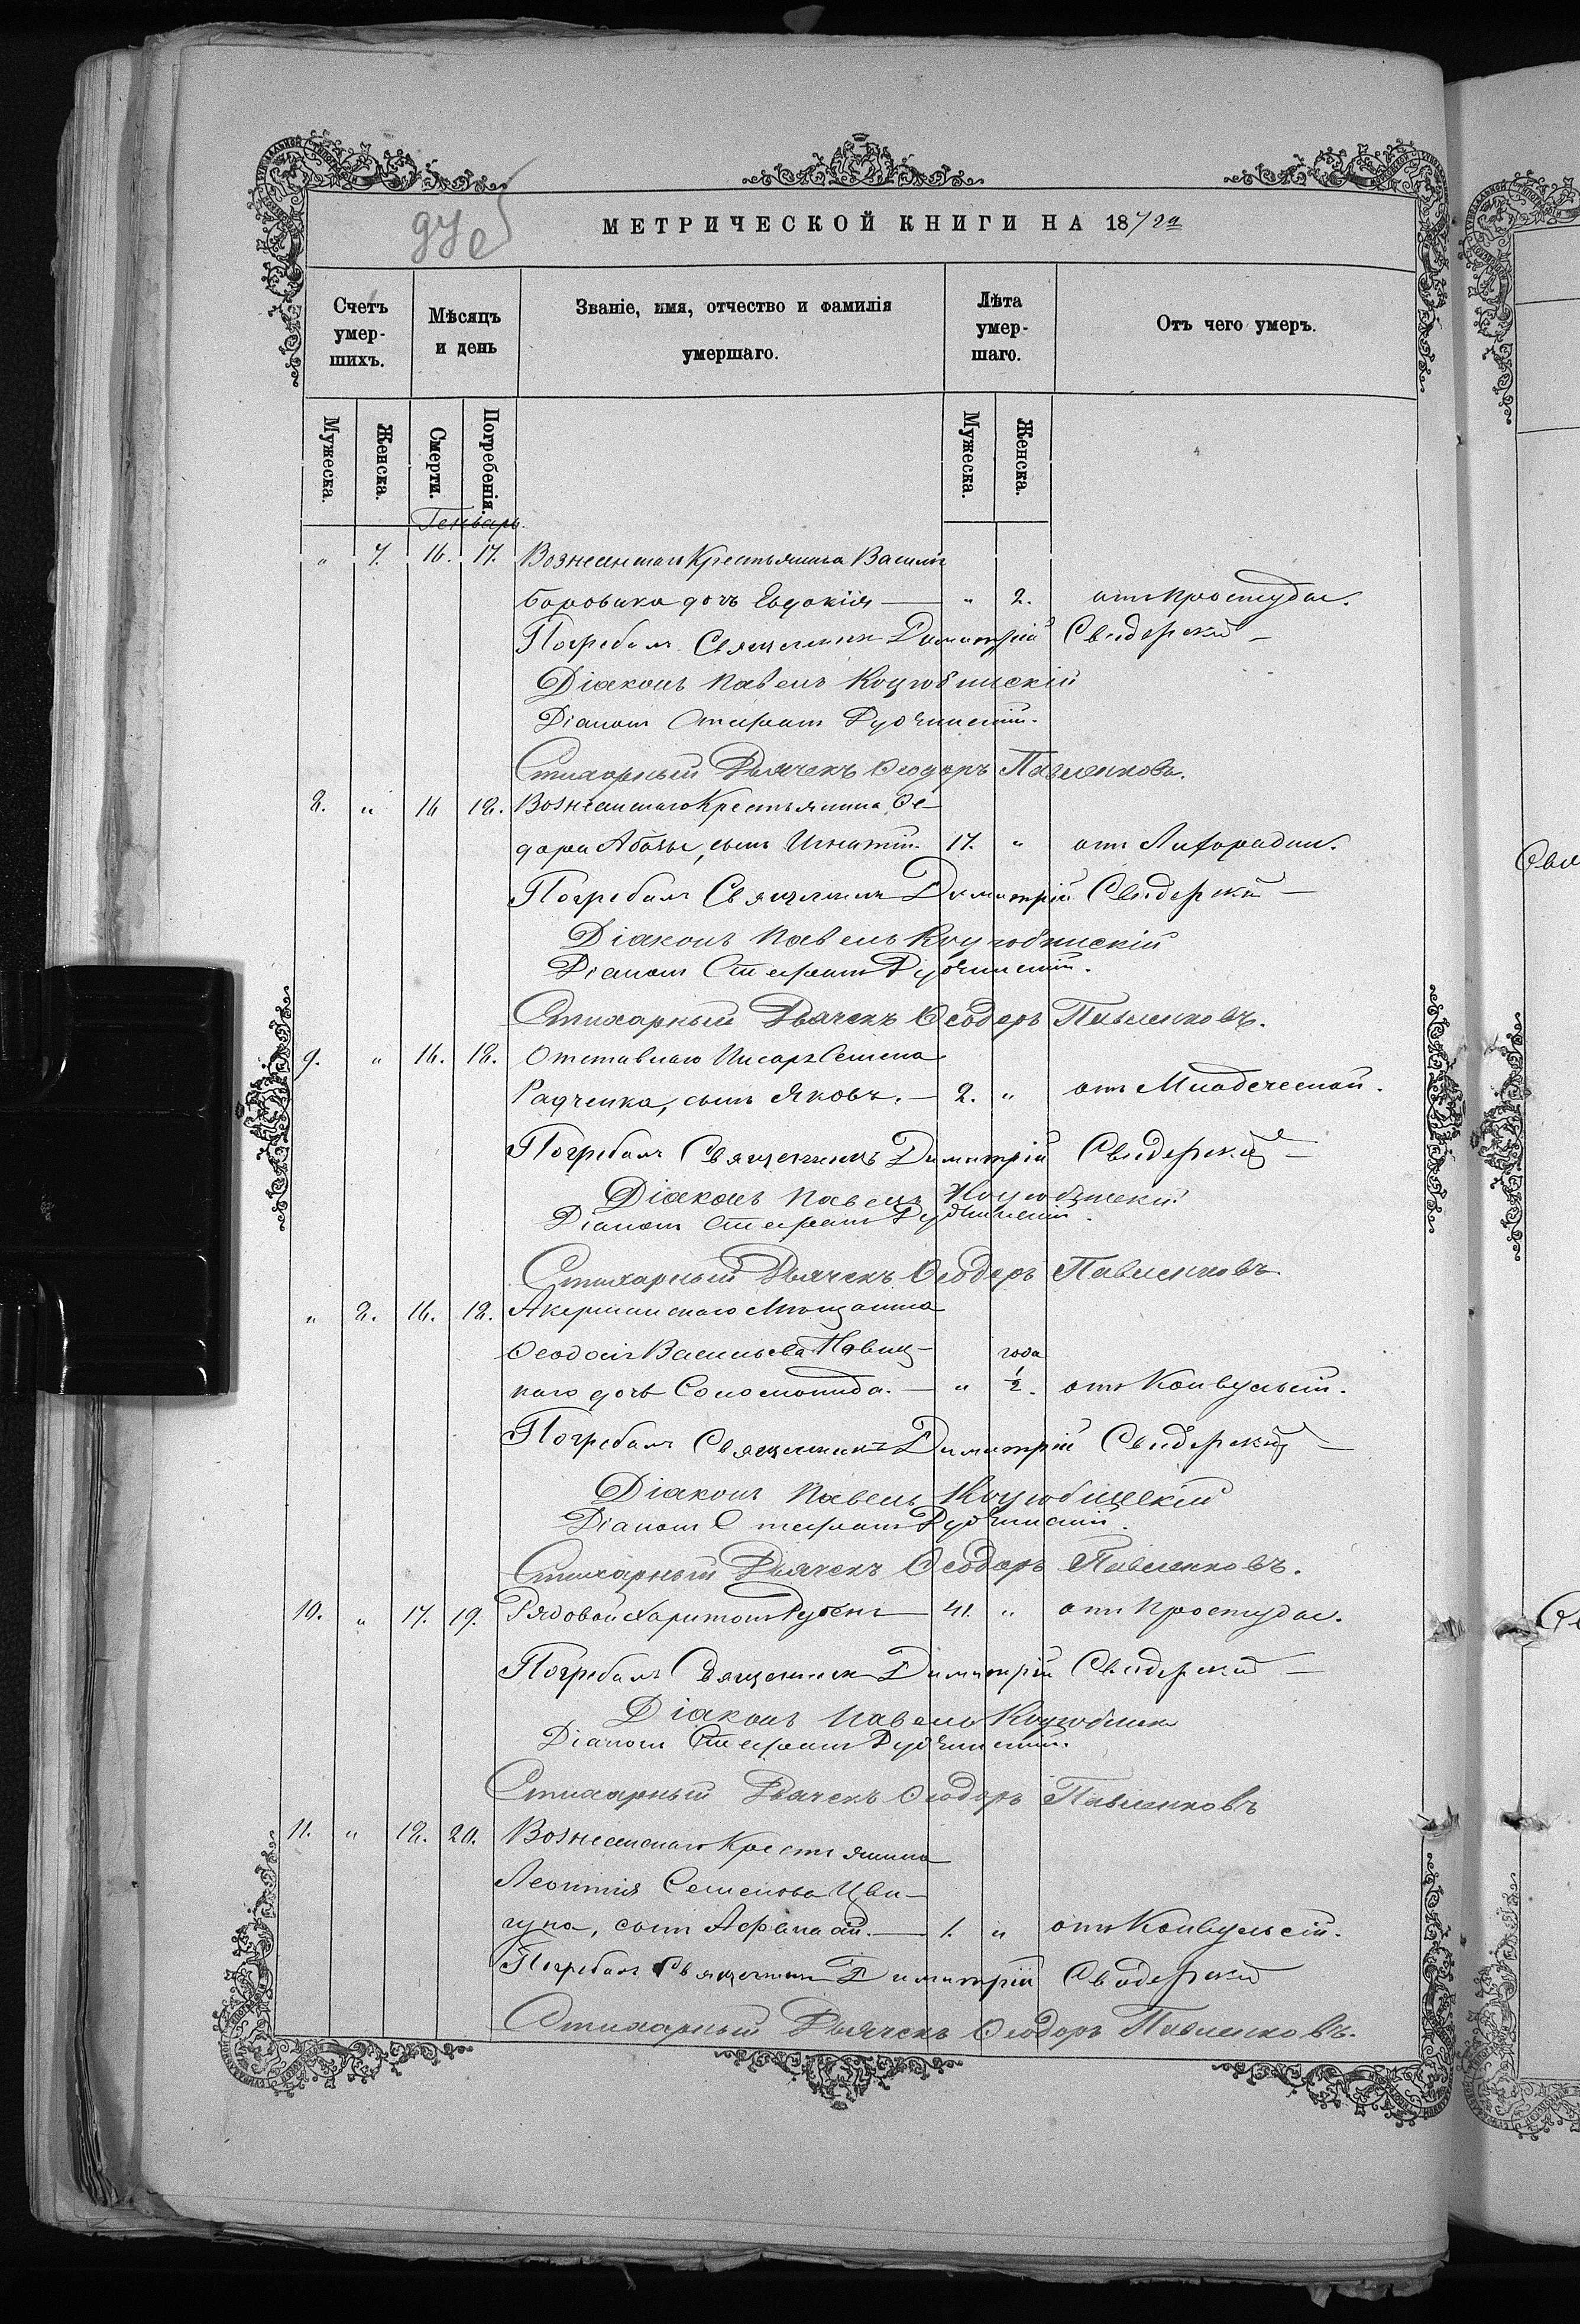 МЕТРИЧЕСКОЙ КНИГИ НА 1872й
Счетъ умер- шихъ.
Мѣсяцъ и день
Званіе, имя, отчество и фамилія умершаго.
Лѣта умер- шаго.
Отъ чего умеръ.
Мужеска. Женска. Смерти. Погребенія. Мужеска. Женска.
Генварь.
" 7. 16. 17. Вознесенскаго Крестьянина Василія
Боровика дочь Евдокія — " 2. отъ простуды.
Погребалъ Священникъ Димитрій Свидерскій —
Діаконъ Павелъ Коцюбинскій
Діаконъ Стефанъ Рудчинскій.
Стихарный Дьячекъ Ѳеодоръ Павленковъ.
8. " 16 18. Вознесенскаго Крестьянина Ѳе-
дора Абазы, сынъ Игнатій. 17. " отъ Лихорадки.
Погребалъ Священникъ Димитрій Свидерскій —
Діаконъ Павелъ Коцюбинскій
Діаконъ Стефанъ Рудчинскій.
Стихарный Дьячекъ Ѳеодоръ Павленковъ.
9. " 16. 18. Отставнаго Писаря Семена
Радченка, сынъ Яковъ. — 2. " отъ Младеческой.
Погребалъ Священникъ Димитрій Свидерскій —
Діаконъ Павелъ Коцюбинскій
Діаконъ Стефанъ Рудчинскій.
Стихарный Дьячекъ Ѳеодоръ Павленковъ
" 8. 16. 18. Акерманскаго Мѣщанина
Ѳеодосія Васильева Навиц- года
каго дочь Соломонида. — " 1/2. отъ Конвульсій.
Погребалъ Священникъ Димитрій Свидерскій —
Діаконъ Павелъ Коцюбинскій
Діаконъ Стефанъ Рудчинскій.
Стихарный Дьячекъ Ѳеодоръ Павленковъ.
10. " 17. 19. Рядовой Харитонъ — 41. " отъ простуды.
Погребалъ Священникъ Димитрій Свидерскій —
Діаконъ Павелъ Коцюбинск
Діаконъ Стефанъ Рудчинскій.
Стихарный Дьячекъ Ѳеодоръ Павленковъ
11. " 18. 20. Вознесенскаго Крестьянина
Леонтія Семенова Цви-
гуна, сынъ Афанасій. — 1. " отъ Конвульсій.
Погребалъ Священникъ Димитрій Свидерскій
Стихарный Дьячекъ Ѳеодоръ Павленковъ.